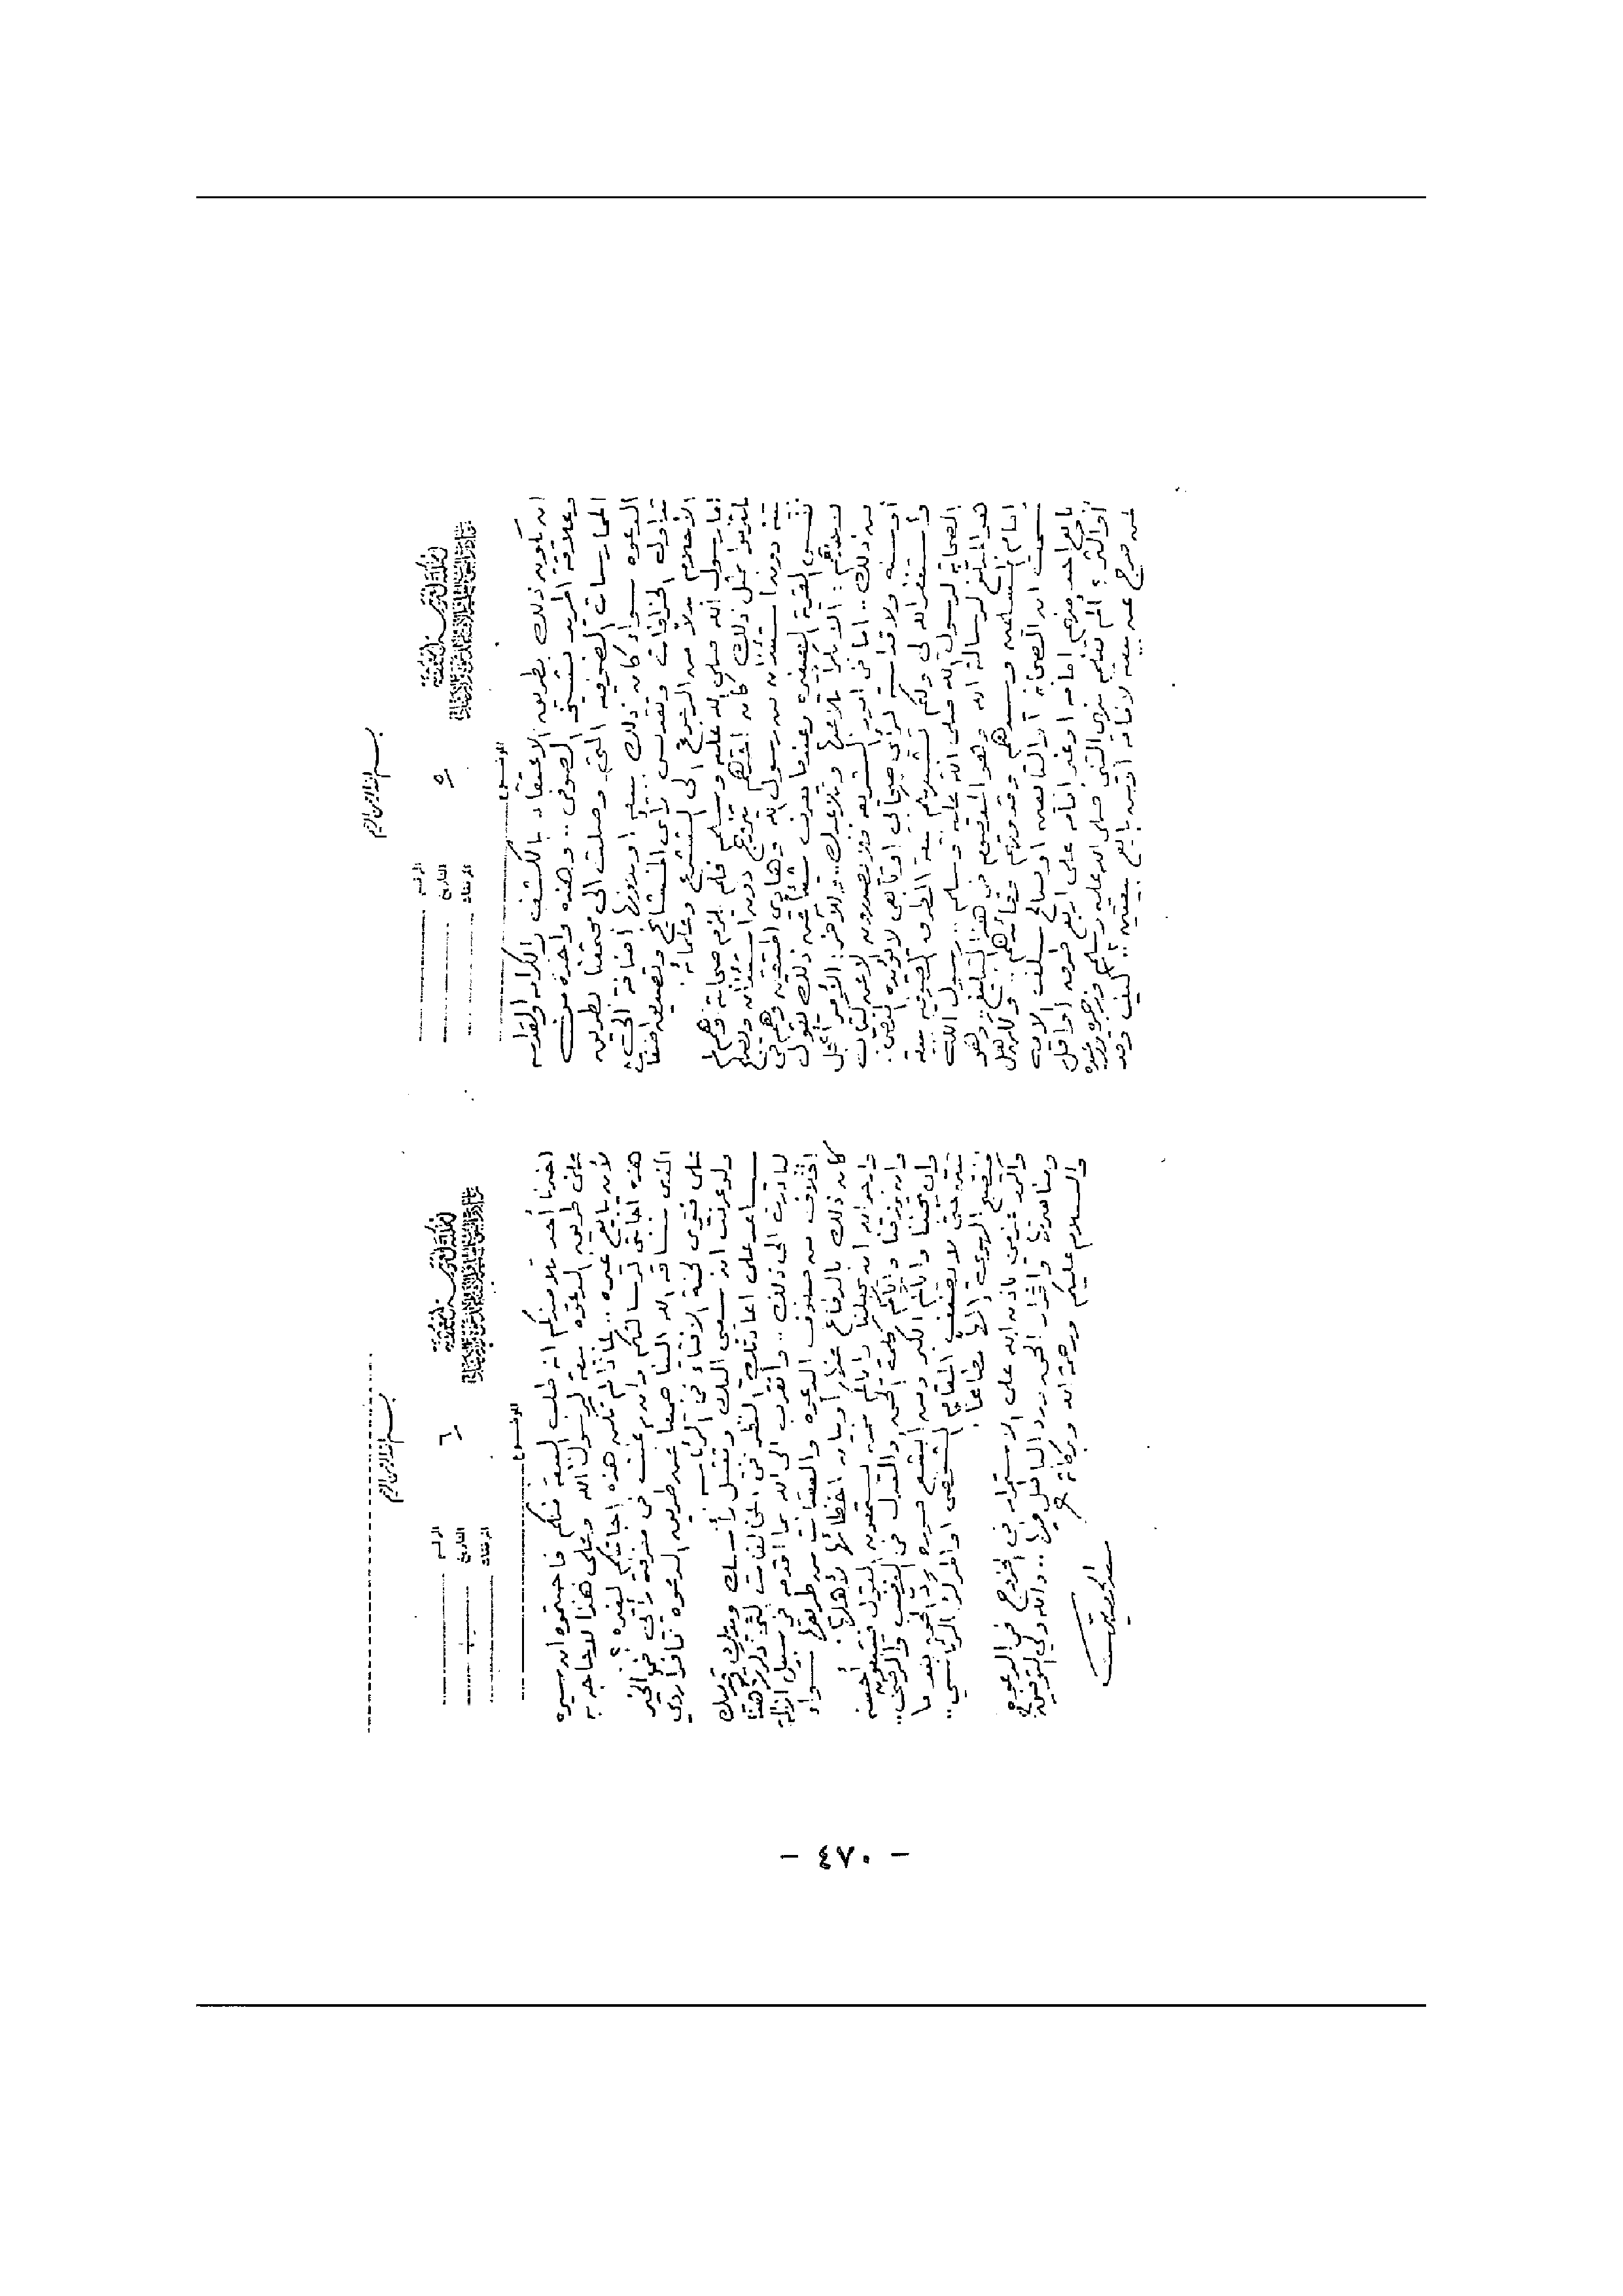 بسم الله الرحمن الرحيم
المملكة العربية السعودية
٥
الرقم
التاريخ
المرفقات
الموضوع
ان يكون ذلك بطريق الاعتقاد بالكشف والكرامه او القداسه
وعلاقة المريد بشيخه الصوفي .. وهذه واحدة من
الممارسات الصوفيه التي وصلت الى مجتمعنا بطريق
الدعوه سواء كان ذلك ببيعه او بدونها اضافة الى
تداول الخرافات وتقديس رأي المشايخ وتصديق
الأحلام بدلا من الرجوع الى الشرع وعلمائه.
اما رسول الله صلى الله عليه وسلم فلم يلزم صحابته وهم لم
يلتزموا بمثل ذلك كان احدهم يتزوج دون استئذان
دون استئذان من رسول الله
القرية الصغيره وعندما يعرف شيئا عن ذلك يقول
لأحدهم : ألا بكرا تلاعبها وتلاعبك .. وللآخر :
من ذلك .. اما في امور الشريعه فلا يصدرون الا عن كتاب
أو سنه ولا قداسة لرأي صحابي او تابعي لا يؤيده النص.
وأستغفر الله لي ولكم تشبيهكم بيعة الطرق الصوفيه ببيعة
الصحابة لرسول الله صلى الله عليه وسلم .. رسول الله
هو المبلغ لرسالة الله وهو المعصوم في هذا التبليغ وهو
إمام المسلمين وسيدهم وقد ورثهم خلفائهم .. وللرسل
سمعت ان الصحابه أو التابعين او صالح سلف الامه
بايع احد منهم إمامه او غير إمامه على اربع طرق او اقل
أو اكثر ؟ الم تعلم بنهي النبي صلى الله عليه وسلم وزجره
لمن خرج عن بيعة لاقامة أخرى بايع بيعتين ؟ كيف وقد
بسم الله الرحمن الرحيم
المملكة العربية السعودية
٦
الرقم
التاريخ
المرفقات
الموضوع
اخبرنا أحد تلامذتكم انه طلب البيعة منكم فأجبتموه ان سيره
على طريق الدعوه بيعة لرسول الله وعلى هذا لا حاجة به
لأن يبايع غيره .. لماذا لم تكن هذه اجابتكم لغيره ؟
هذه اجابتي لرسالتكم وان رغبت في معرفة رأيي نحو الخير
الذي ساقه الله الينا جميعا عن طريق الدعوة فاقرأ ردي
على فتوى لجنة الافتاء في الرئاسه.
ولو عرفت ان سعيي اليك وتقبيل رأسك ويدك وقدمك
يساعد على اعادتك النظر في المخالفات التي ذكرتها هنا
لبادرت الى ذلك .. وأتقرب الى الله بما اقدم في سبيل ازالة
الخلاف من صفوف الدعوه والعقبات من طريقها سواء
كان ذلك بالدفاع عنها او بيان اخطائها لأهلها.
وادعو الله ان يجعلنا واياكم ممن يستمعون القول فيتبعون أحسنه
وان يرزقنا واياكم كلمة الحق والعدل في الغضب والرضى ..
وان يجنبنا واياكم الكبر ومن ابشع صوره رد الحق بعد ما
تبين حتى لا يضعف المقام الشخصي او المركز الرئاسي ..
فيصبح الهوى إلها مطاعا.
واكرر عزمي باذن الله على الاستمرار في الخروج في الدعوه
ومناصرتها واقرار الحق ورد الباطل فيها .. والله ولي التوفيق.
والسلام عليكم ورحمة الله وبركاته
سعد الحصين
- ٤٧٠ -